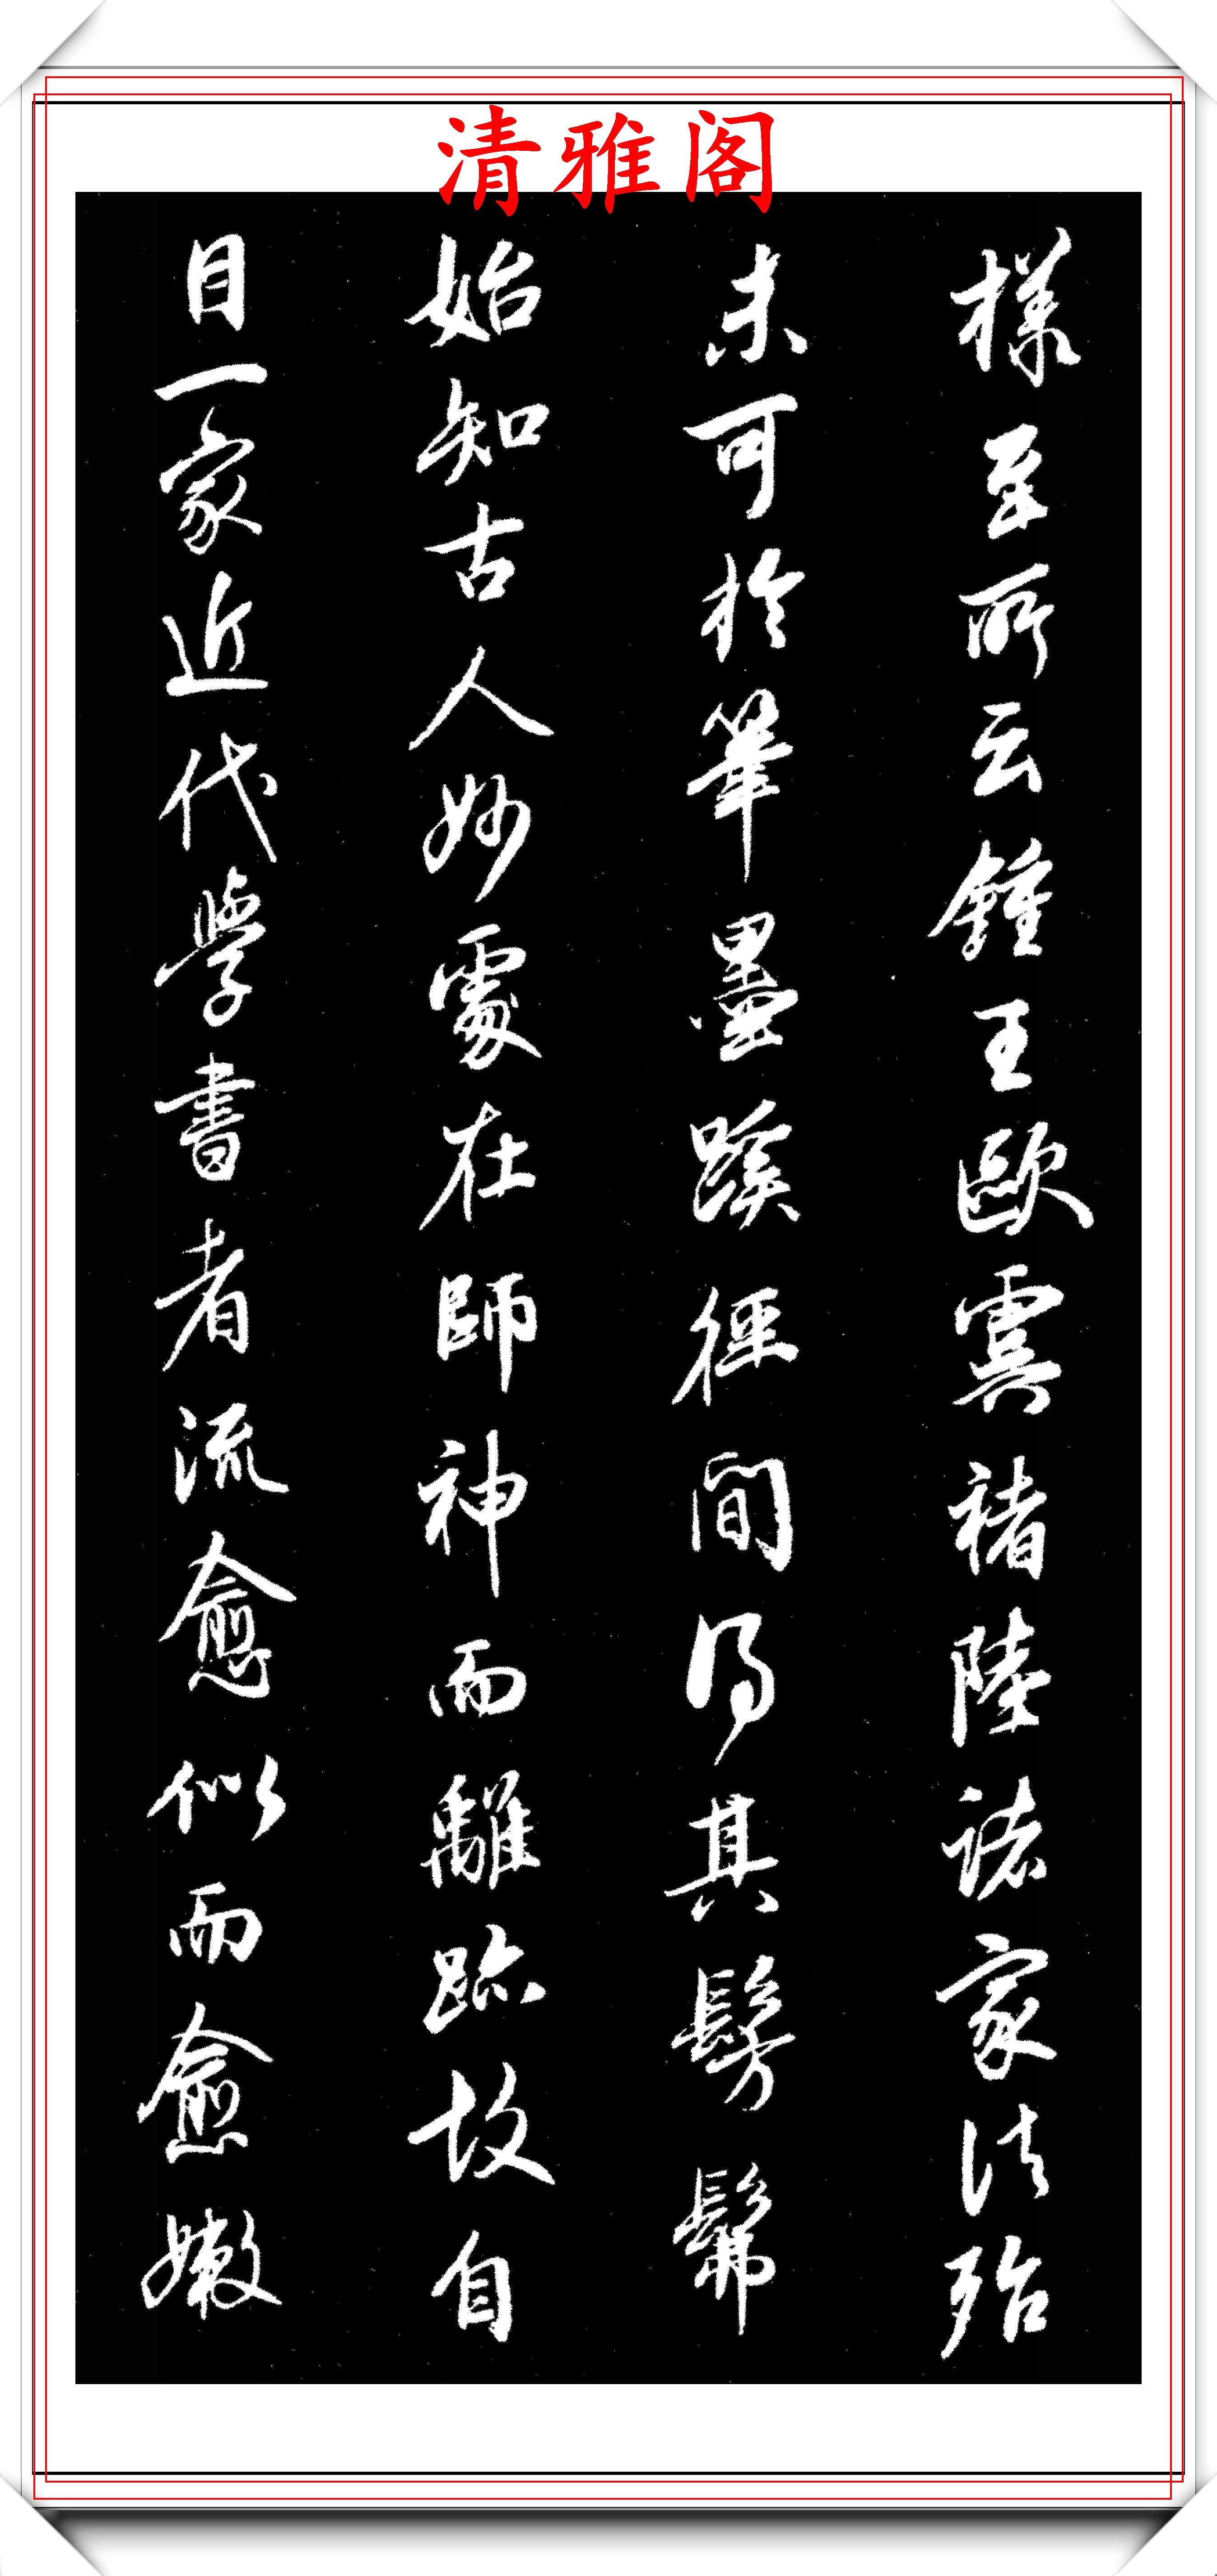 清雅阁
樣至所云鍾王歐虞褚陸諸家法殆
未可於筆墨蹊徑間得其髣髴
始知古人妙處在師神而離跡故自
目一家近代學書者流愈似而愈嫩